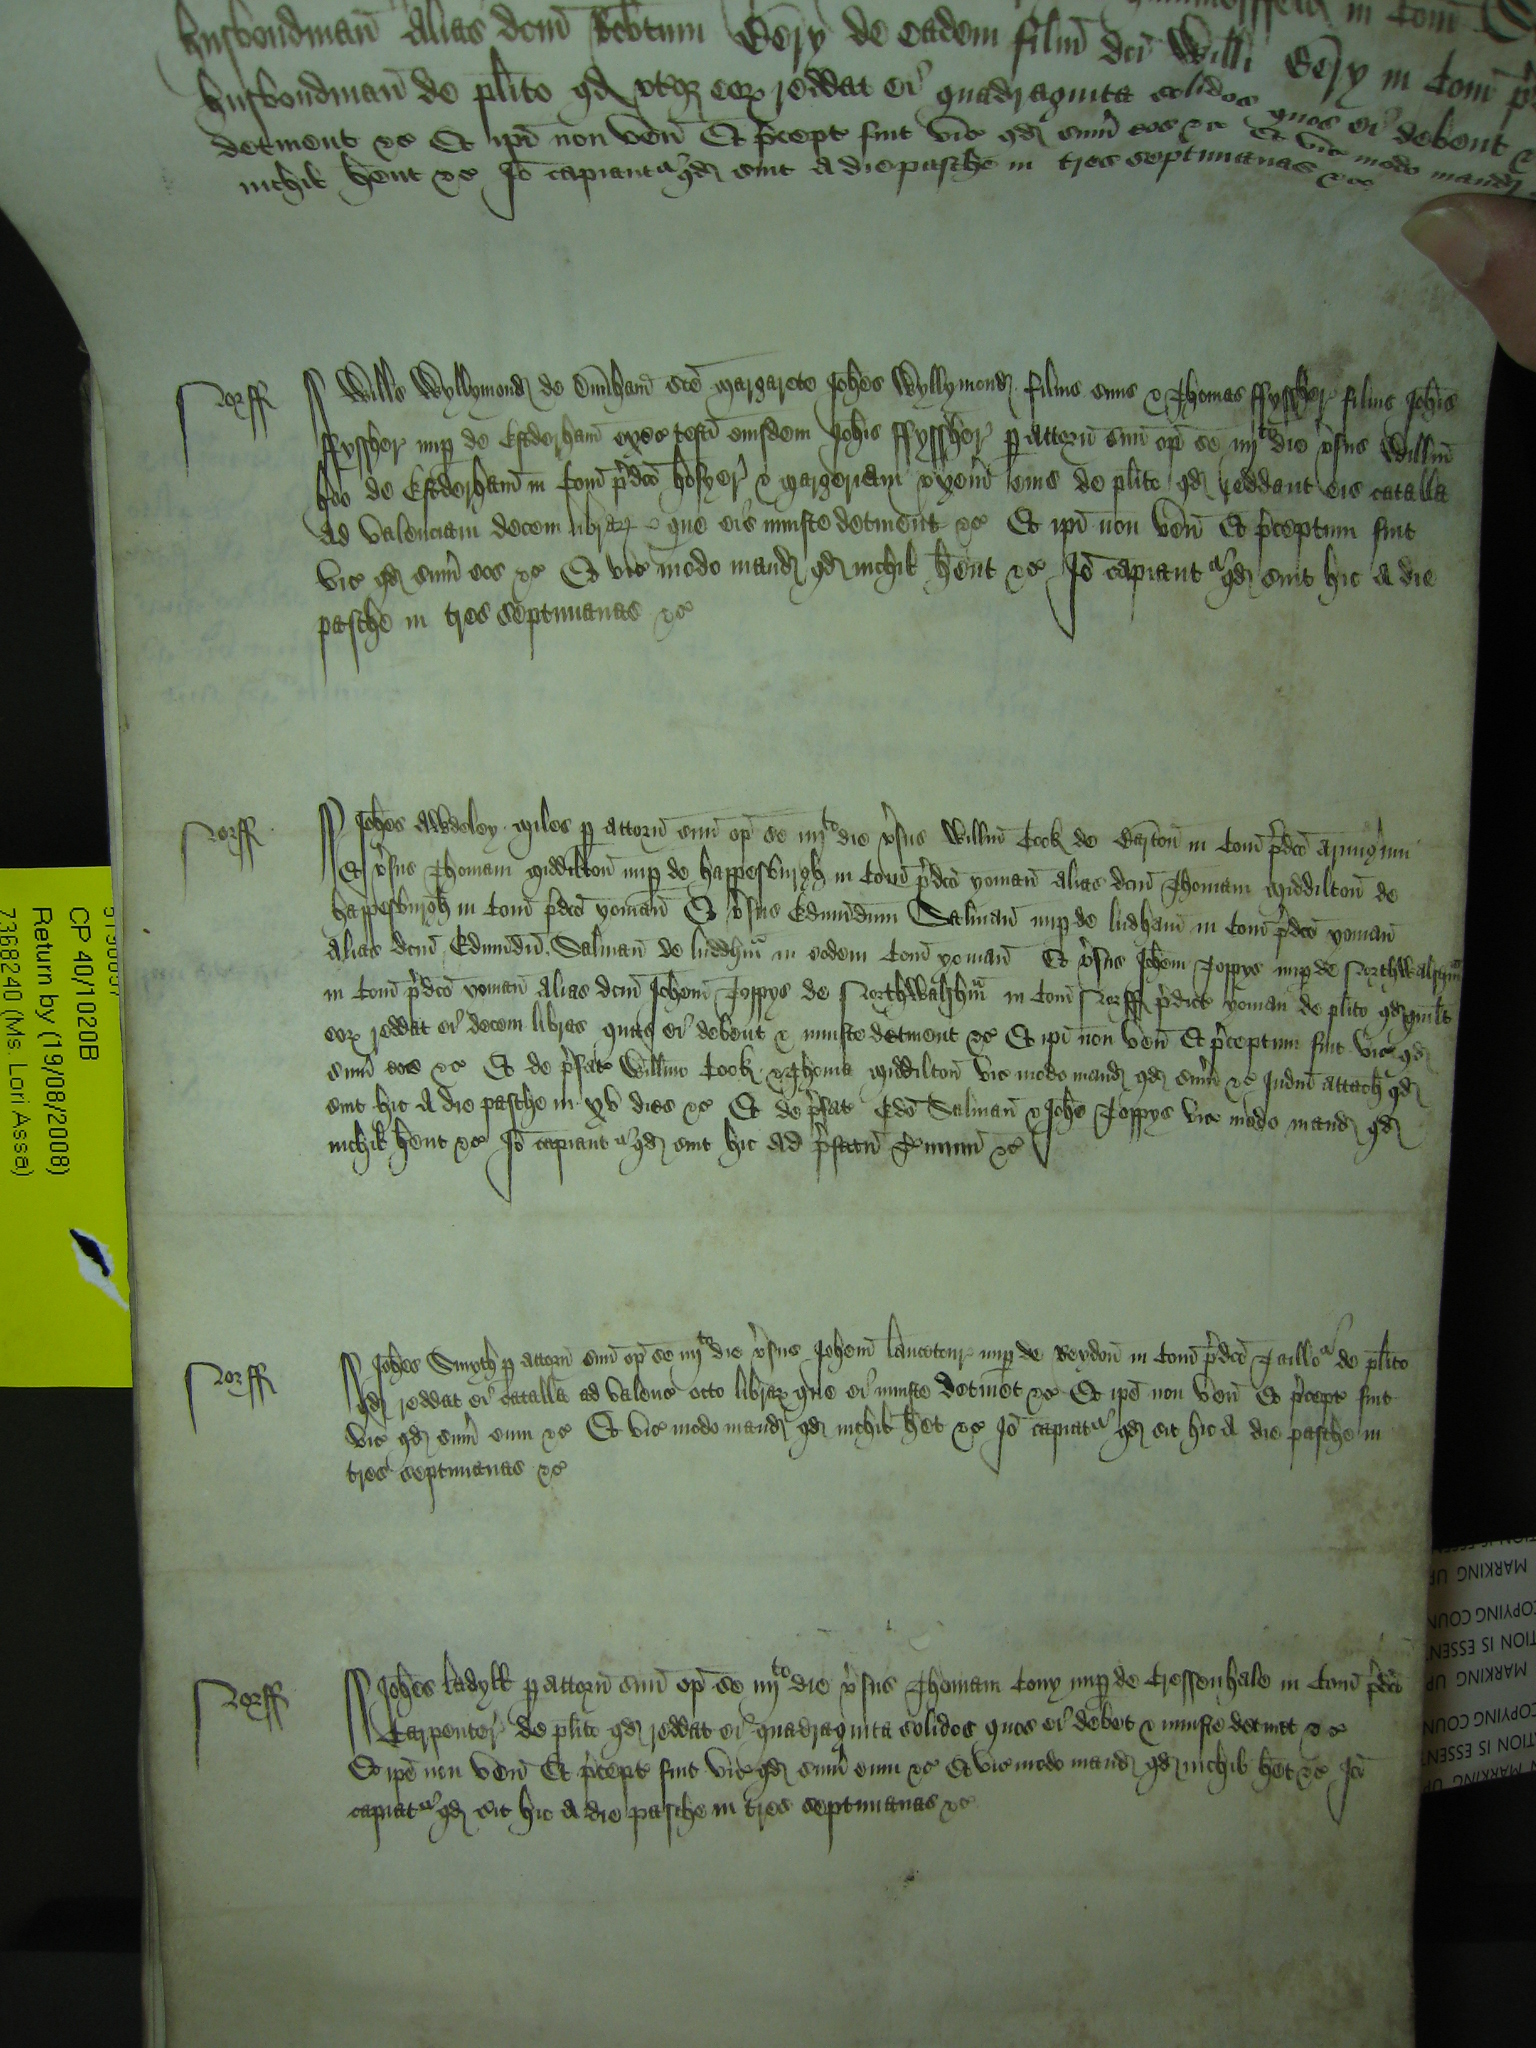 husbondman̄ alias dc̄m Rob̄tum Gēry de eadem filiū dc̄i Will̄i Gēry in Com̄ p̓
husbondman̄ de pl̄ito qd̄ vt̄qꝫ eoꝝ reddat ei quadraginta solidos quos ei debent &
detinent &c Et ip̄i non ven̄ Et p̓cept̄ fuit vic̄ qd̄ sum̄ eos &c Et vic̄ modo mand̄
nichil h̄ent &c Iō capiant̄ qd̄ sint a die pasche in tres septimanas &c
Norff Will̄s Wyllymond̄ de sc̄e Margarete Joh̄es Wyllymond̄ filius suus & Thomas ffyssher filius Joh̄is
ffyssher nup̄ de Estderham̄ exec̄ testī eiusdem Joh̄is ffyssher p̄ attorn̄ suū op̄ se iiijto die v̓sus Will̄m
hoo de Estderham̄ in Com̄ p̓dc̄o hosyer & margeriam vxem̄ eius de pl̄ito qd̄ reddant eis catalla
ad valenciam decem libraꝝ que eis iniuste detinent &c Et ip̄i non ven̄ Et p̓ceptum fuit
vic̄ qd̄ sum̄ eos &c Et vic̄ modo mand̄ qd̄ nichil h̄ent &c Iō capiant̄ qd̄ sint hic a die
pasche in tres septimanas &c
Norff Joh̄es Awdeley Miles p̄ attorn̄ suū op̄ se iiijto die v̓sus Will̄m Cook de in Com̄ p̓dc̄o Armig̓um
Et v̓sus Thomam Middilton̄ nup̄ de happesburgh in Com̄ p̓dc̄o yoman̄ alias dc̄m Thomam Middilton̄ de
happesburgh in Com̄ p̓dc̄o yoman̄ Et v̓sus Edmundum Salman̄ nup̄ de ludham̄ in Com̄ p̓dc̄o yoman̄
alias dc̄m Edmundū Salman̄ de luddhm̄ in eodem Com̄ yoman̄ Et v̓sus Joh̄em Joppys nup̄ de Northwalshm̄
in Com̄ p̓dc̄o yoman̄ alias dc̄m Joh̄em Joppys de Northwalshm̄ in Com̄ Norff p̓dict̄ yoman̄ de pl̄ito qd̄ quil̄t
eoꝝ reddat ei decem libras quas ei debent & iniuste detinent &c Et ip̄i non ven̄ Et p̓ceptum fuit vic̄ qd̄
sum̄ eos &c Et de p̓fat̄ Will̄mo Cook & Thoma Middilton̄ vic̄ modo mand̄ qd̄ sum̄ &c Iudm̄ attach̄ qd̄
sint hic a die pasche in xv dies &c Et de p̓fat̄ Edō Salman̄ & Joh̄e Joppys vic̄ modo mand̄ qd̄
nichil h̄ent &c Iō capiant̄ qd̄ sint hic ad p̓fatū Tminū &c
Norff Joh̄es Smyth p̄ attorn̄ suū op̄ se iiijto die v̓sus Joh̄em nup̄ de Reydon̄ in Com̄ p̓dc̄o Taillor de pl̄ito
qd̄ reddat ei catalla ad valenc̄ octo libraꝝ que ei iniuste detinet &c Et ip̄e non ven̄ Et p̓cept̄ fuit
vic̄ qd̄ sum̄ eum &c Et vic̄ modo mand̄ qd̄ nichil h̄et &c Iō capiat̄ qd̄ sit hic a die pasche in
tres septimanas &c
Norff Joh̄es ladyll p̄ attorn̄ suū op̄ se iiijto die v̓sus Thomam Cony nup̄ de Cressenhale in Com̄ p̓dc̄o
Carpenter de pl̄ito qd̄ reddat ei quadraginta solidos quos ei debet & iniuste detinet &c
Et ip̄e non ven̄ Et p̓cept̄ fuit vic̄ qd̄ sum̄ eum &c Et vic̄ modo mand̄ qd̄ nichil h̄et &c Iō
capiat̄ qd̄ sit hic a die pasche in tres septimanas &c
CP 40/1020B
Return by (19/08/2008)
7368240 (Ms. Lori Assa)
MARKING UP
COPYING COUN
TION IS ESSENT
MARKING UP
COPYING COUN
TION IS ESSENT
MARKING UP